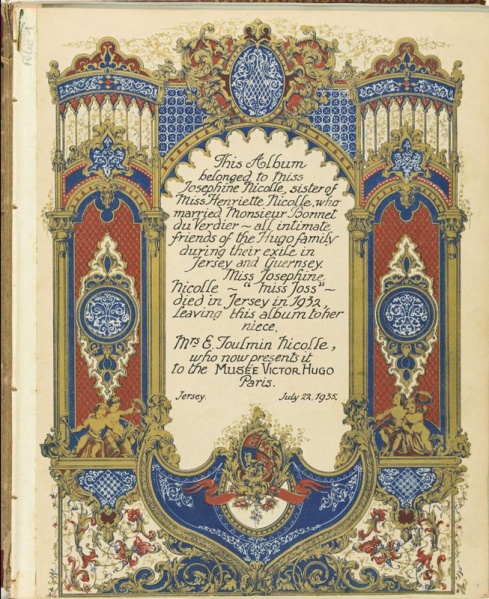 This Album
belonged to Miss
Josephine Nicolle, sister of
Miss Henriette Nicolle, who
married Monsieur Bonnet
du Verdier ~ all intimate
friends of the Hugo family
during their exile in
Jersey and Guernsey.
Miss Josephine
Nicolle ~ "Miss Joss" ~
died in Jersey in 1932,
leaving this album to her
niece,
Mrs E. Toulmin Nicolle,
who now presents it
to the MUSÉE VICTOR HUGO
Paris.
Jersey. July 22. 1935.